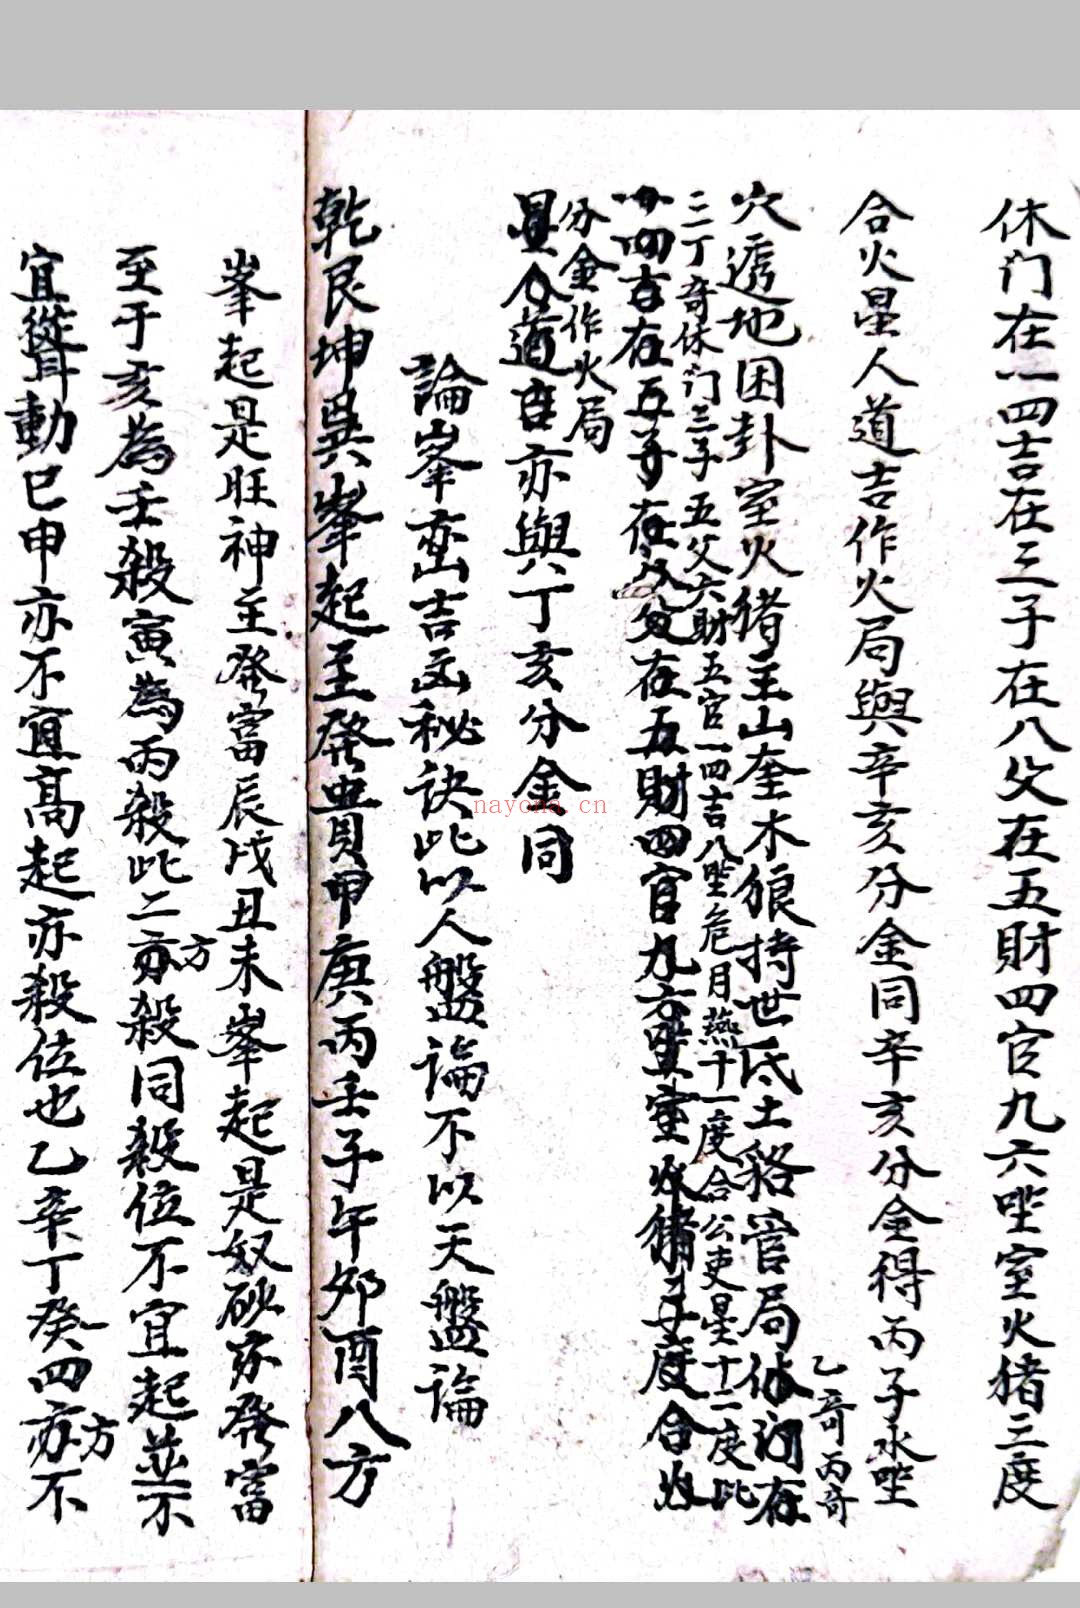 休门在一四吉在三子在八父在五財四官九六坐室火猪三度
合火星人道吉作火局與辛亥分金同辛亥分金得丙子水坐
乙奇丙奇
穴透地困卦室火猪主山奎木狼持世氐土貉管局休门在
三丁奇休门三子五父六財五官一四吉八坐危月燕十一度合公吏星十二度此
四吉在五子在父在五財四官九六坐室火猪子度合火
分金作火局
星人道吉亦與丁亥分金同
論峯峦吉凶秘訣此以人盤論不以天盤論
乾艮坤巽峯起主發貴甲庚丙壬子午卯酉八方
峯起是旺神主發富辰戌丑未峯起是奴砂亦發富
至于亥為壬殺寅為丙殺此二方殺同殺位不宜起並不
宜聳動巳申亦不宜高起亦殺位也乙辛丁癸四方不
nayona.cn